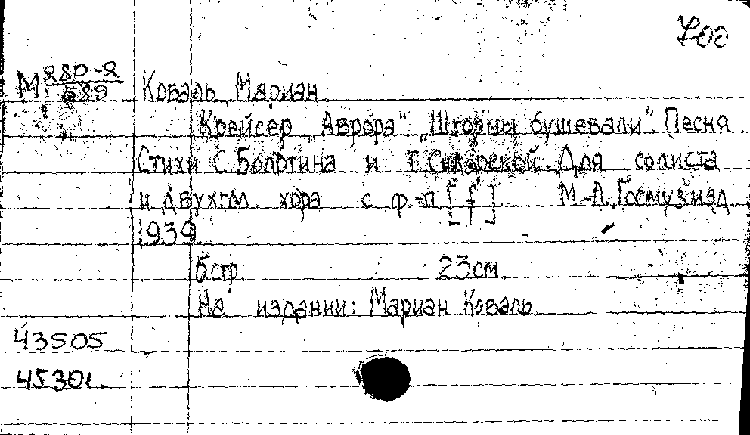 700
М 880-2/589
Коваль Мариан.
Крейсер „Аврора" „Штормы бушевали". Песня
Стихи С. Болотина и Т. Сикорской. Для солиста
и двухгол. хора с ф.-п. [f] М.-Л., Госмузизд.
1939
6 стр. 23 см.
На издании: Мариан Коваль
43505
45301.